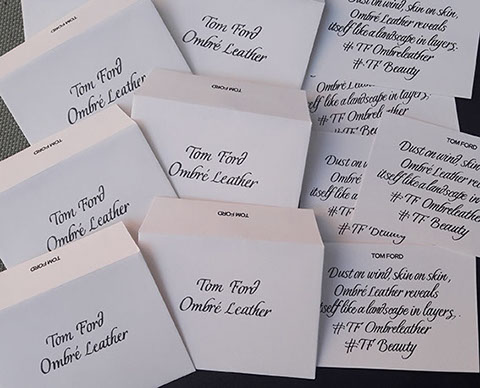 Tom Ford
Ombré Leather
Dust on wind, skin on skin,
Ombré Leather reveals
itself like a landscape in layers.
# TF Ombreleather
# TF Beauty
TOM FORD
Tom Ford
Ombré Leather
TOM FORD
Tom Ford
Ombré Leather
like a landscape in layers,
TF Beauty
TOM FORD
Tom Ford
Ombré Leather
Dust on wind,
Ombré
itself like a
# TF
TOM FORD
Dust on wind, skin on skin,
Ombré Leather reveals
itself like a landscape in layers.
# TF Ombreleather
# TF Beauty
TOM FORD
Tom Ford
Ombré Leather
TOM FORD
Tom Ford
Ombré Leather
TOM FORD
Dust on wind, skin on skin,
Ombré Leather reveals
itself like a landscape in layers,.
# TF Ombreleather
# TF Beauty